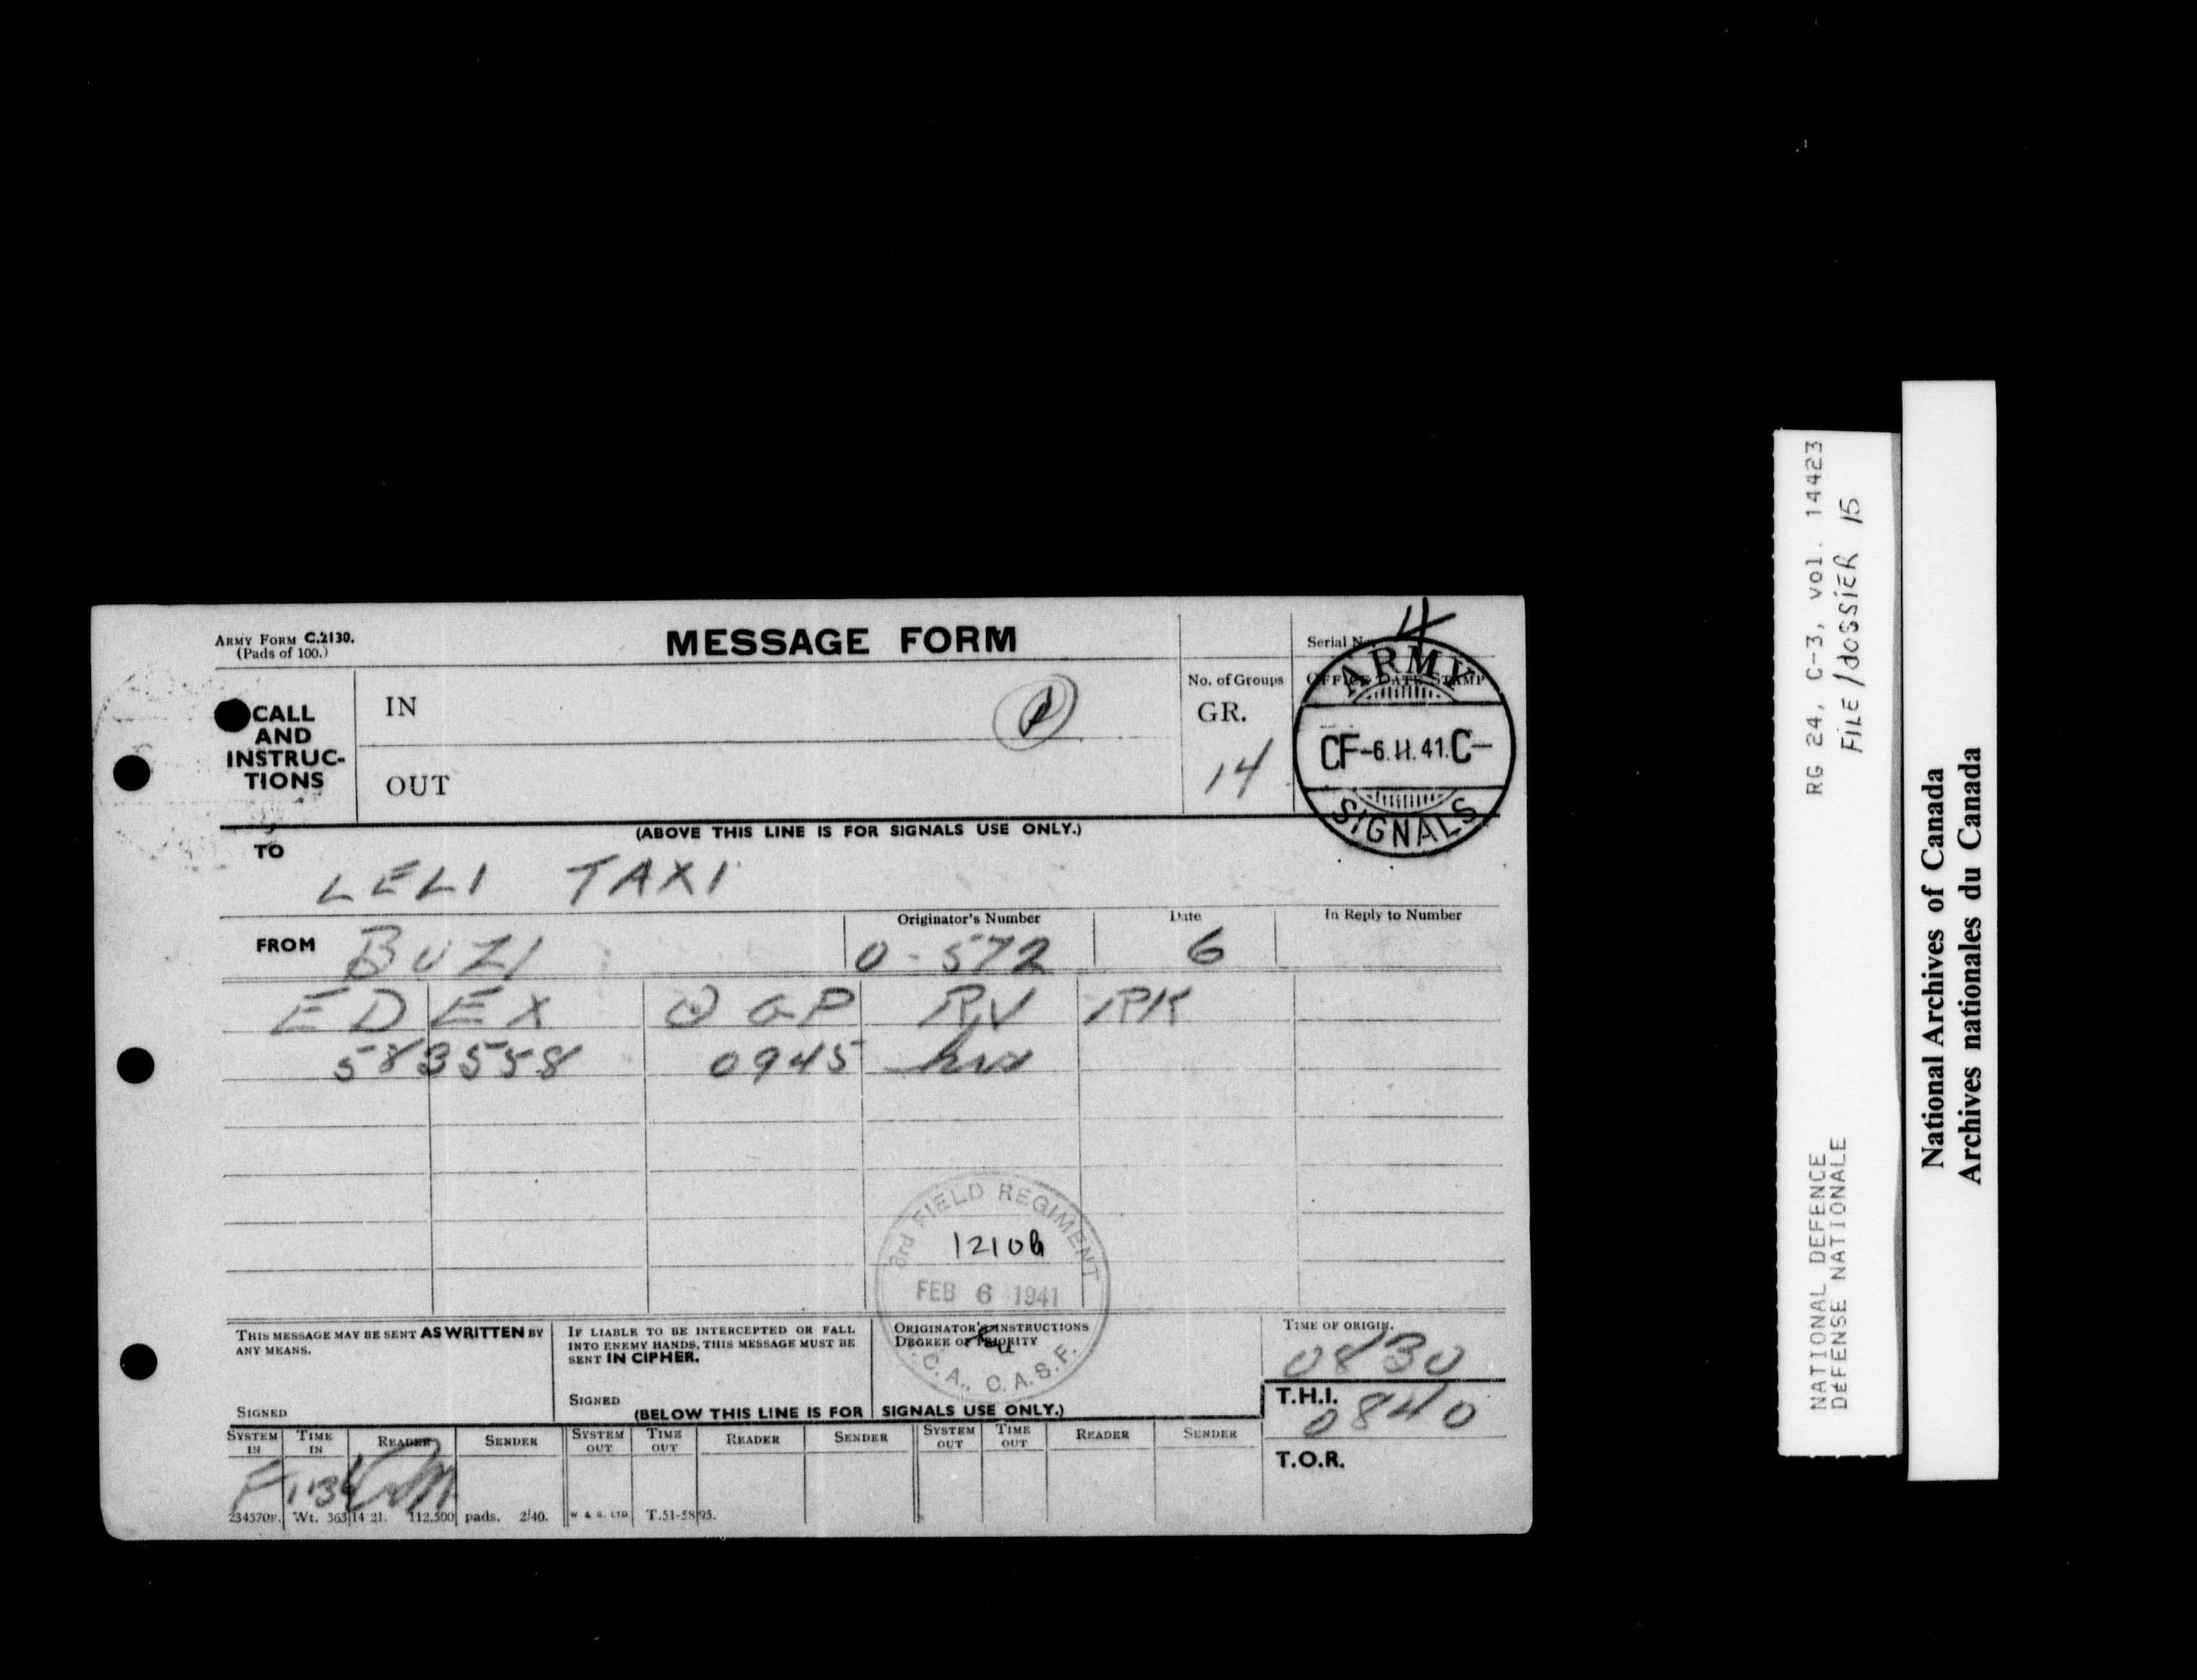 ARMY FORM C.2130.
(Pads of 100.)
MESSAGE FORM
Serial No.
4
CALL
AND
INSTRUC-
TIONS
IN
OUT
No. of Groups
GR.
14
OFFICE DATE STAMP
ARMY
CF-6.II.41.C-
SIGNALS
(ABOVE THIS LINE IS FOR SIGNALS USE ONLY.)
TO
LELI TAXI
FROM BUZI
Originator's Number
0-572
Date
6
In Reply to Number
ED EX GP RV RK
583558 0945 hrs
3rd FIELD REGIMENT
1210h
FEB 6 1941
C.A., C.A.S.F.
THIS MESSAGE MAY BE SENT AS WRITTEN BY
ANY MEANS.
SIGNED
IF LIABLE TO BE INTERCEPTED OR FALL
INTO ENEMY HANDS, THIS MESSAGE MUST BE
SENT IN CIPHER.
SIGNED
ORIGINATOR'S INSTRUCTIONS
DEGREE OF PRIORITY
TIME OF ORIGIN.
0830
T.H.I.
0840
T.O.R.
(BELOW THIS LINE IS FOR SIGNALS USE ONLY.)
SYSTEM IN TIME IN READER SENDER SYSTEM OUT TIME OUT READER SENDER SYSTEM OUT TIME OUT READER SENDER
234570F. Wt. 36314 21. 112,500 pads. 2/40. W & S. LTD. T.51-5895.
RG 24, C-3, vol. 14423
FILE/dOSSIER 15
NATIONAL DEFENCE
DÉFENSE NATIONALE
National Archives of Canada
Archives nationales du Canada